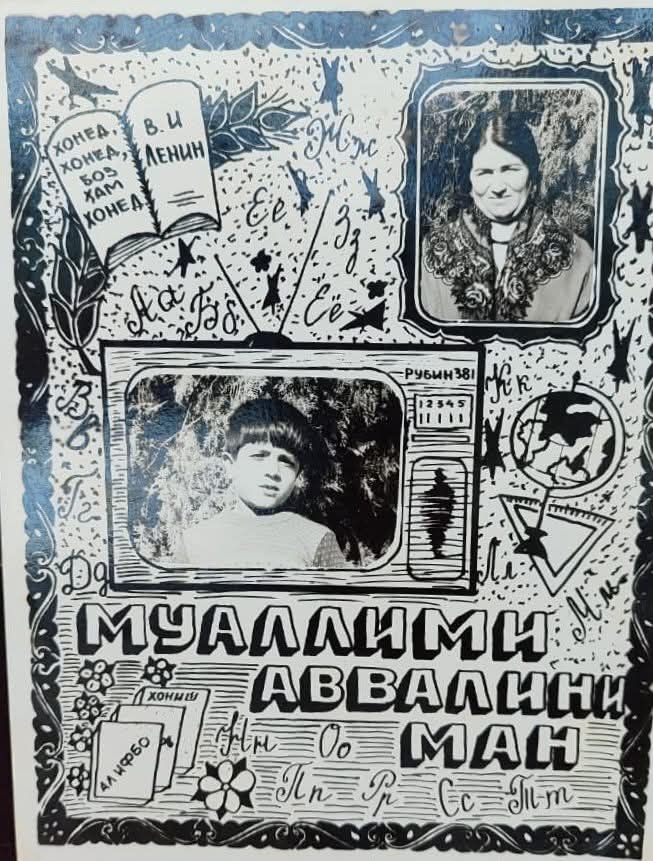 ХОНЕД,
ХОНЕД,
БОЗ
ҲАМ
ХОНЕД
В. И
ЛЕНИН
Жж
Ее
Зз
Аа
Бб
Её
Вв
РУБИН 381
1 2 3 4 5
Кк
Гг
Дд
Лл
Мм
МУАЛЛИМИ
АВВАЛИНИ
МАН
ХОНИШ
АЛИФБО
Нн
Оо
Пп
Рр
Сс
Тт